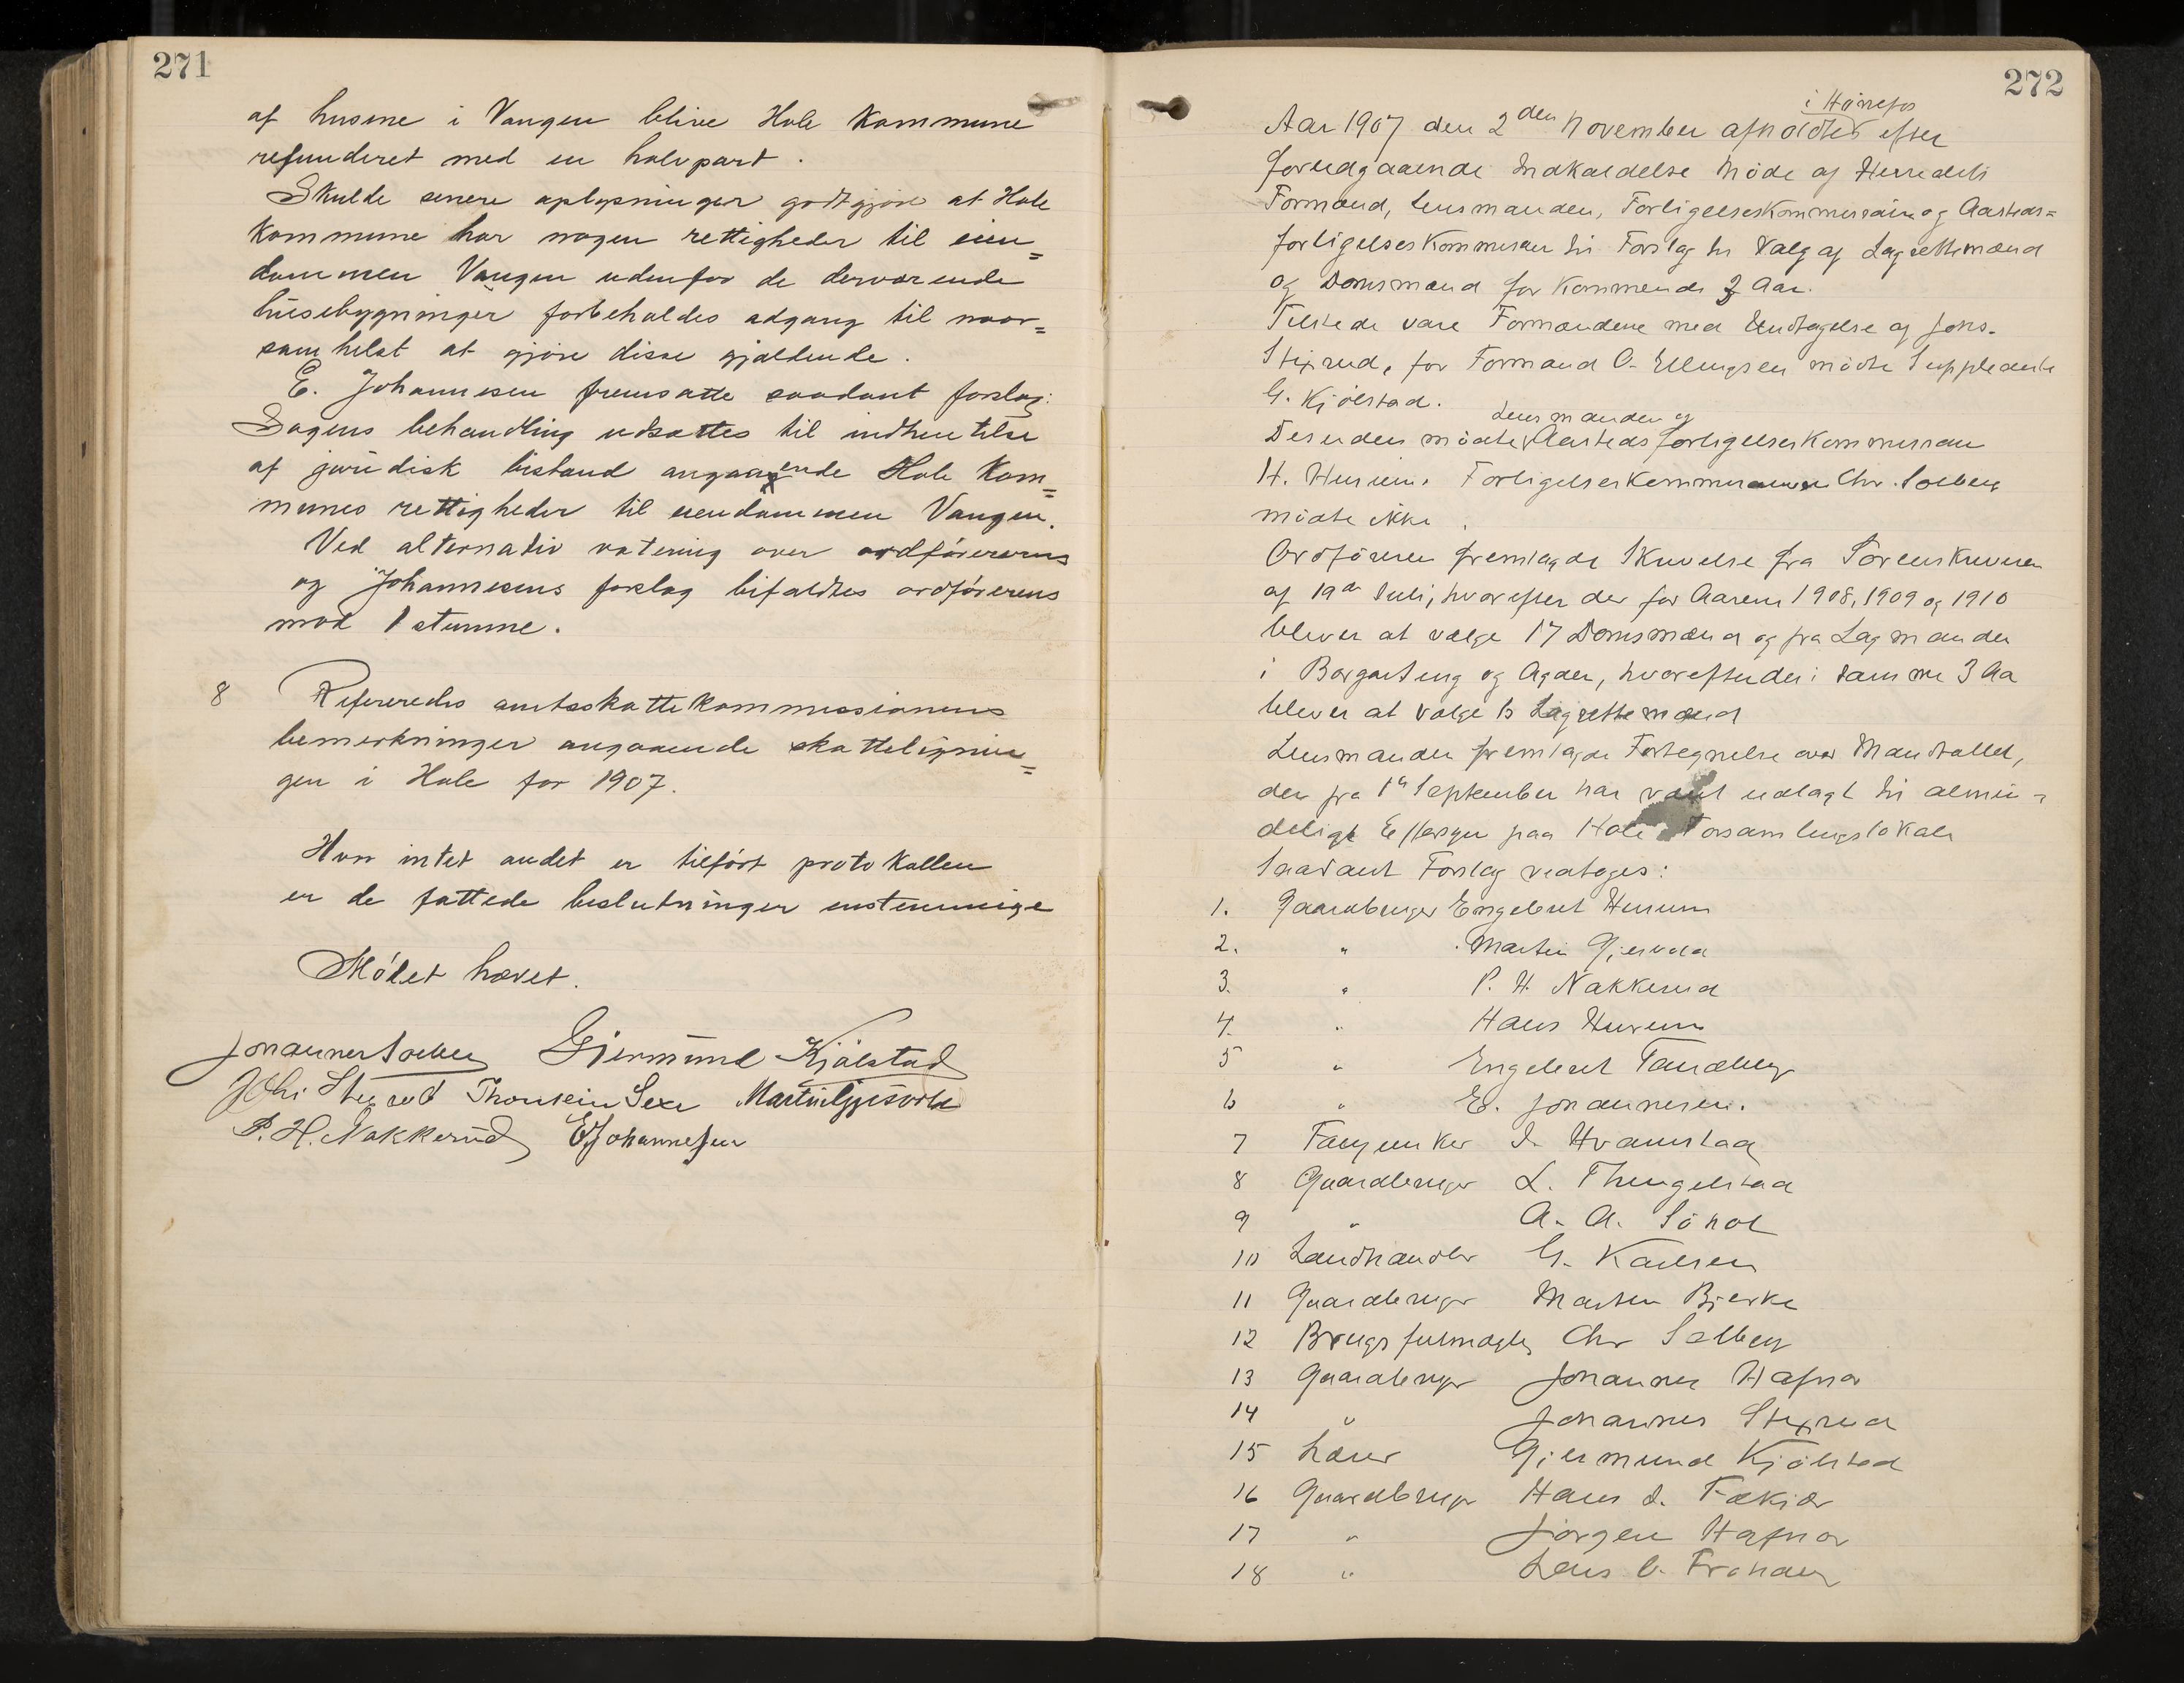 271
af husene i Vangen blive Hole Kommune
refunderet med en halvpart.
Skulde senere oplysninger godtgjøre at Hole
Kommune har nogen rettigheder til eien=
dommen Vangen udenfor de derværende
husebygninger forbeholdes adgang til naar=
somhelst at gjøre disse gjældende.
E. Johannesen fremsatte saadant forslag:
Sagens behandling udsættes til indhentelse
af juridisk bistand angaaende Hole Kom=
munes rettigheder til eiendommen Vangen.
Ved alternativ votering over ordførerens
og Johannesens forslag bifaldtes ordførerens
mod 1 stemme.
8 Refereredes amtsskattekommissionens
bemerkninger angaaende skatteligning=
gen i Hole for 1907.
Hvor intet andet er tilført protokollen
er de fattede beslutninger enstemmige
Mødet hævet.
Johannes Solberg Gjermund Kjölstad
Johs. Stixrud Thorstein Sexe Martin Gjesvold
P. H. Nakkerud E Johannesen
272
i Hönefos
Aar 1907 den 2den November afholdtes efter
forudgaaende Indkaldelse Möde af Herredets
Formænd, Lensmanden, Forligelseskommissær og Aasteds=
forligelseskommissær til Forslag til Valg af Lagrettemænd
og Domsmænd for Kommende 3 Aar.
Tilstede vare Formændene med Undtagelse af Johs.
Stixrud, for Formand O. Ellingsen mödte Suppleanten
G. Kjölstad.
Lensmanden og
Desuden mödte Aastedsforligelseskommissær
H. Hurum. Forligelseskommissær Chr. Solberg
mödte ikke.
Ordföreren fremlagde Skrivelse fra Sorenskriveren
af 19de Juli, hvorefter der for Aarene 1908, 1909 og 1910
bliver at vælge 17 Domsmænd og fra Lagmanden
i Borgarting og Agder, hvorefter der i samme 3 Aa
bliver at vælge 13 Lagrettemænd
Lensmanden fremlagde Fortegnelse over Mandtallet,
der fra 1ste September har været udlagt til almin=
deligt Eftersyn paa Hole Forsamlingslokale
Saadant Forslag vedtoges:
1. Gaardbruger Engebret Hurum
2. " Martin Gjesvold
3. " P. H. Nakkerud
4. " Hans Hurum
5 " Engebret Tandberg
6 " E. Johannesen.
7 Hvamstad
8 Gaardbruger L. Thingelstad
9 " A. A. Söhol
10 Landhandler G. Karlsen
11 Gaardbruger Morten Bjerke
12 Brugsfuldmægtig Chr Solberg
13 Gaardbruger Johannes Hafnor
14 " Johannes Stixrud
15 Lærer Gjermund Kjölstad
16 Gaardbruger Hans J. Fækjær
17 " Jörgen Hafnor
18 "